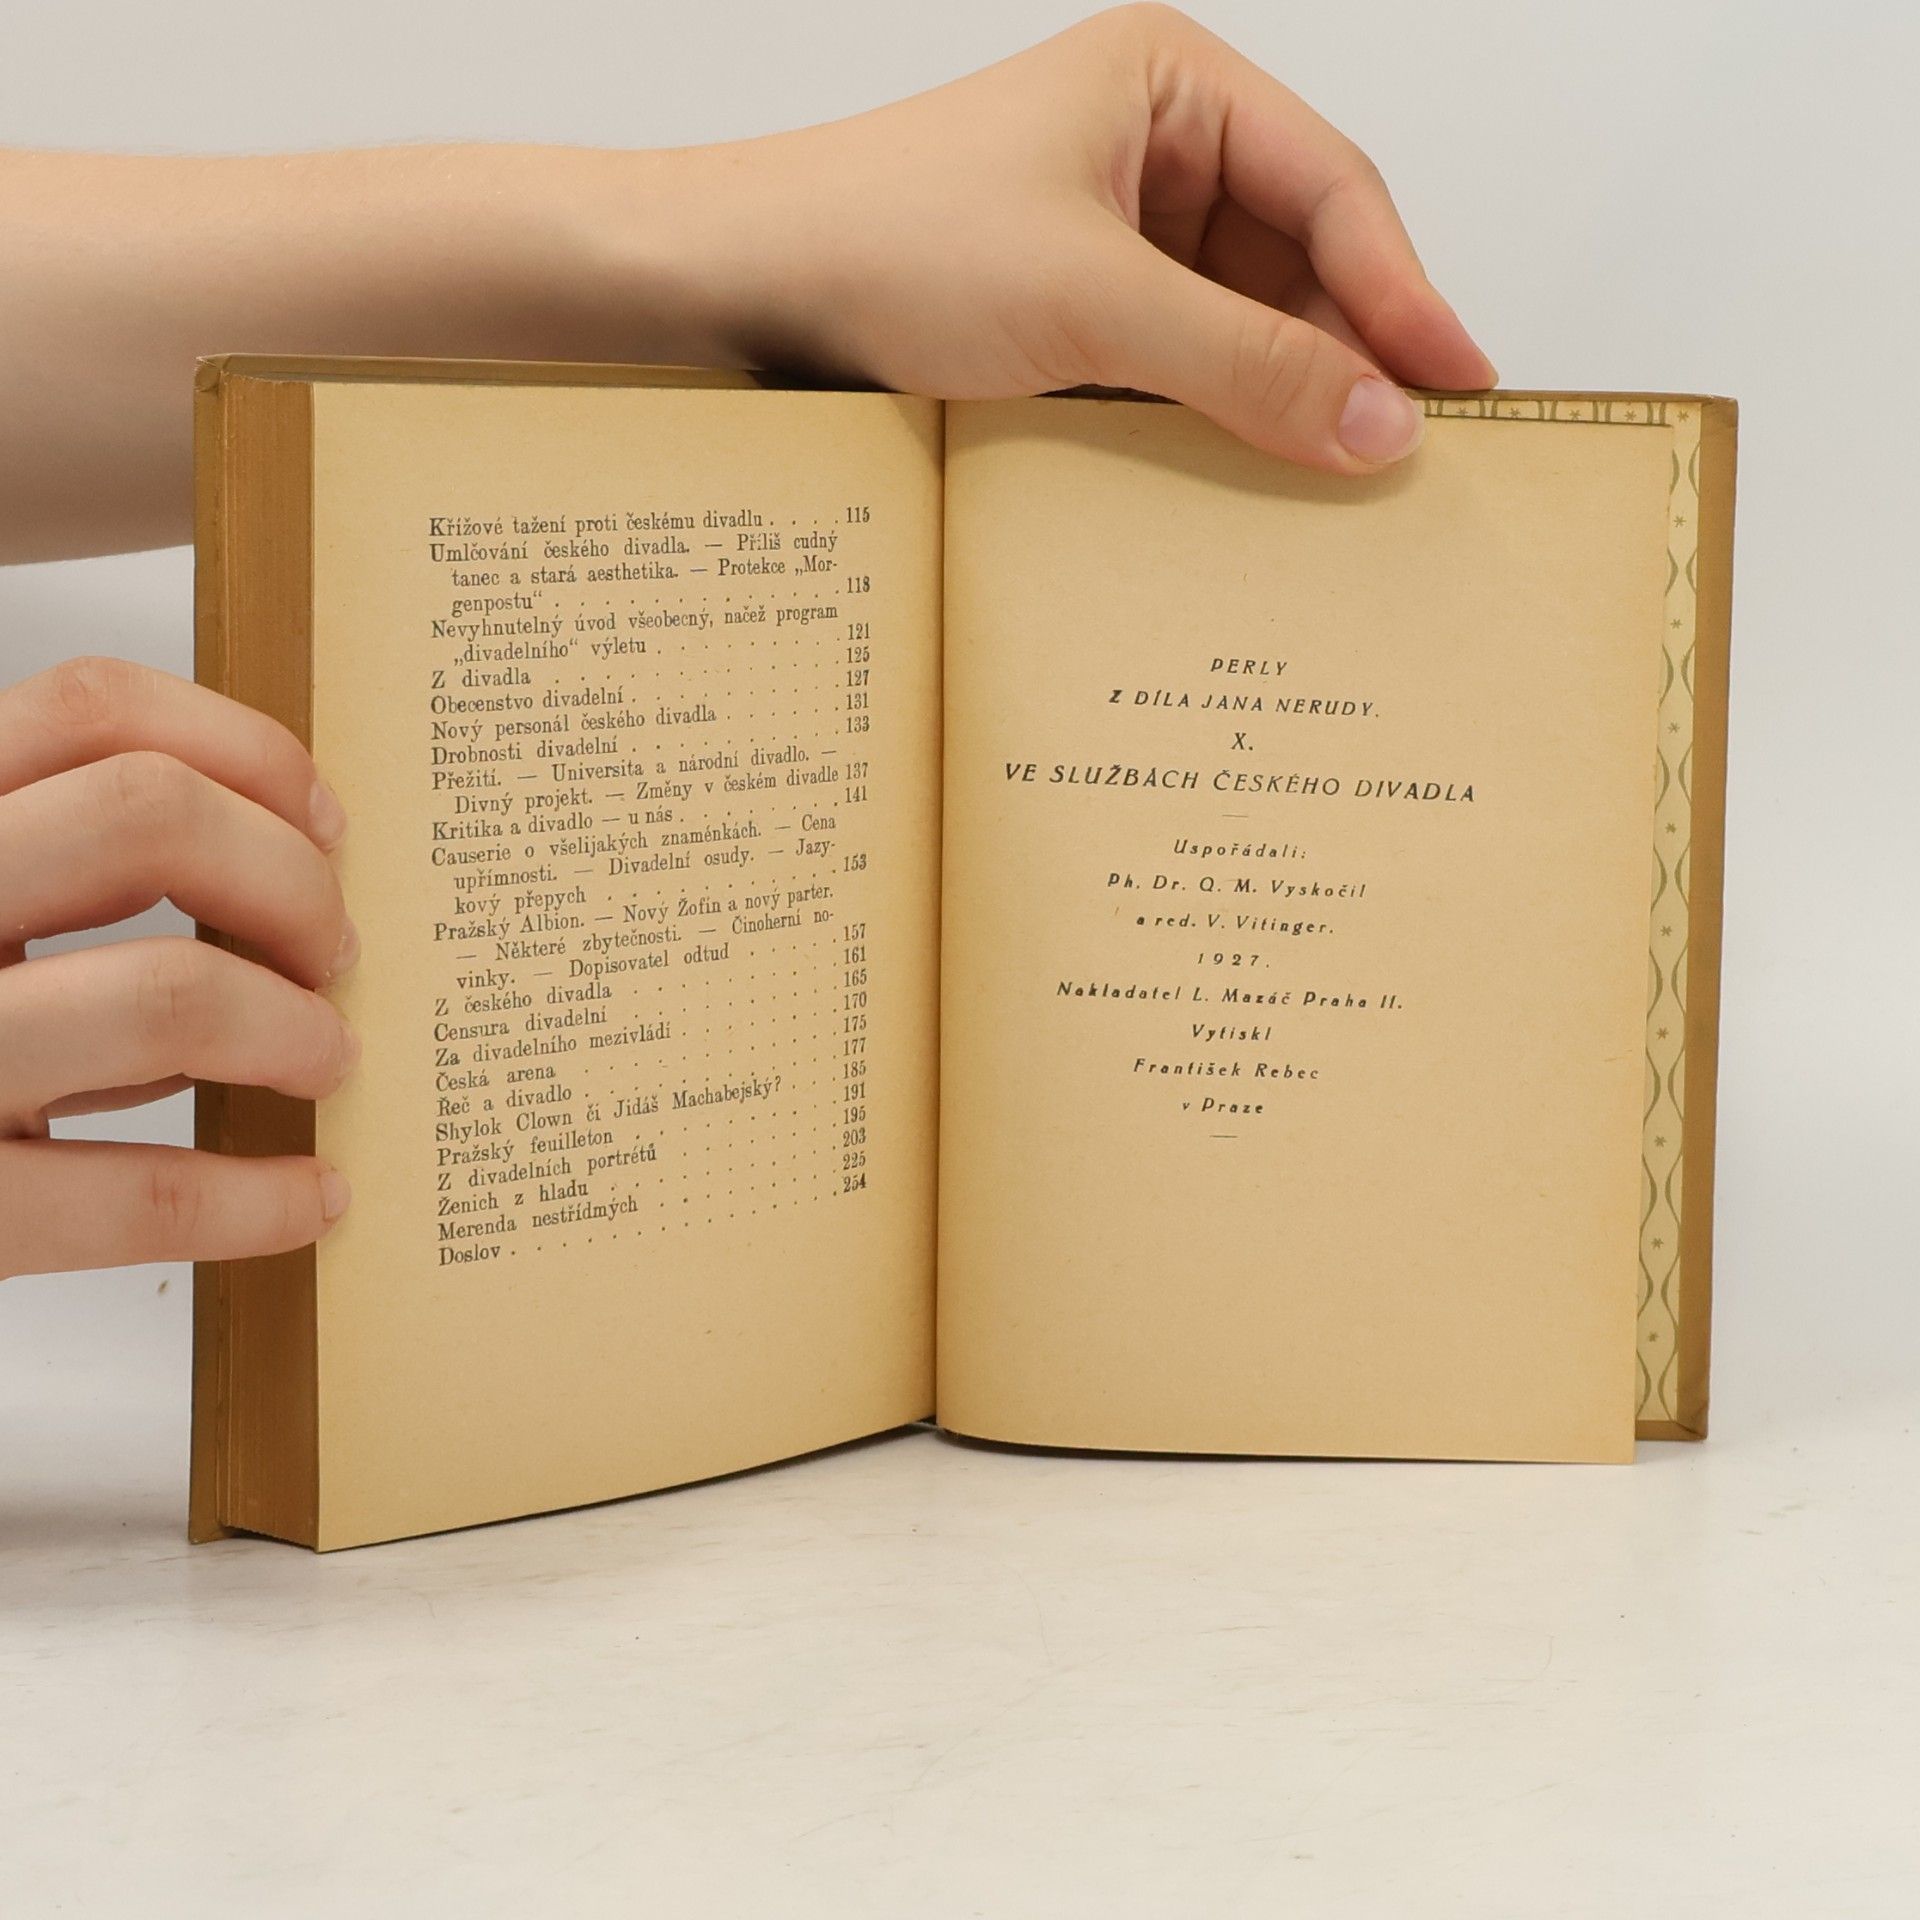 Křížové tažení proti českému divadlu . . . . 115
Umlčování českého divadla. — Příliš cudný
tanec a stará aesthetika. — Protekce „Mor-
genpostu“ . . . . . . . . . . . . . 118
Nevyhnutelný úvod všeobecný, načež program
„divadelního“ výletu . . . . . . . . 121
Z divadla . . . . . . . . . . . . . 125
Obecenstvo divadelní . . . . . . . . . 127
Nový personál českého divadla . . . . . . 131
Drobnosti divadelní . . . . . . . . . 133
Přežití. — Universita a národní divadlo. —
Divný projekt. — Změny v českém divadle 137
Kritika a divadlo — u nás . . . . . . . 141
Causerie o všelijakých znaménkách. — Cena
upřímnosti. — Divadelní osudy. — Jazy-
kový přepych . . . . . . . . . . . 153
Pražský Albion. — Nový Žofín a nový parter.
— Některé zbytečnosti. — Činoherní no-
vinky. — Dopisovatel odtud . . . . . 157
Z českého divadla . . . . . . . . . 161
Censura divadelní . . . . . . . . . 165
Za divadelního mezivládí . . . . . . . 170
Česká arena . . . . . . . . . . . 175
Řeč a divadlo . . . . . . . . . . . 177
Shylok Clown či Jidáš Machabejský? . . . 185
Pražský feuilleton . . . . . . . . . 191
Z divadelních portrétů . . . . . . . 195
Ženich z hladu . . . . . . . . . . 203
Merenda nestřídmých . . . . . . . . 225
Doslov . . . . . . . . . . . . . 254
PERLY
Z DÍLA JANA NERUDY.
X.
VE SLUŽBÁCH ČESKÉHO DIVADLA
Uspořádali:
Ph. Dr. Q. M. Vyskočil
a red. V. Vitinger.
1927.
Nakladatel L. Mazáč Praha II.
Vytiskl
František Rebec
v Praze